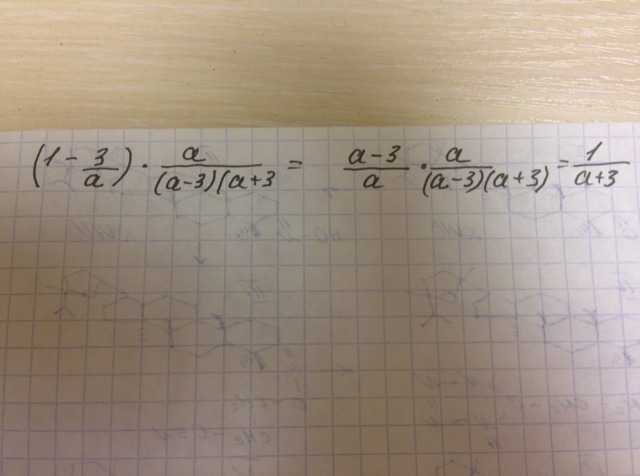 (1 - 3/a) · a/((a-3)(a+3 = (a-3)/a · a/((a-3)(a+3)) = 1/(a+3)